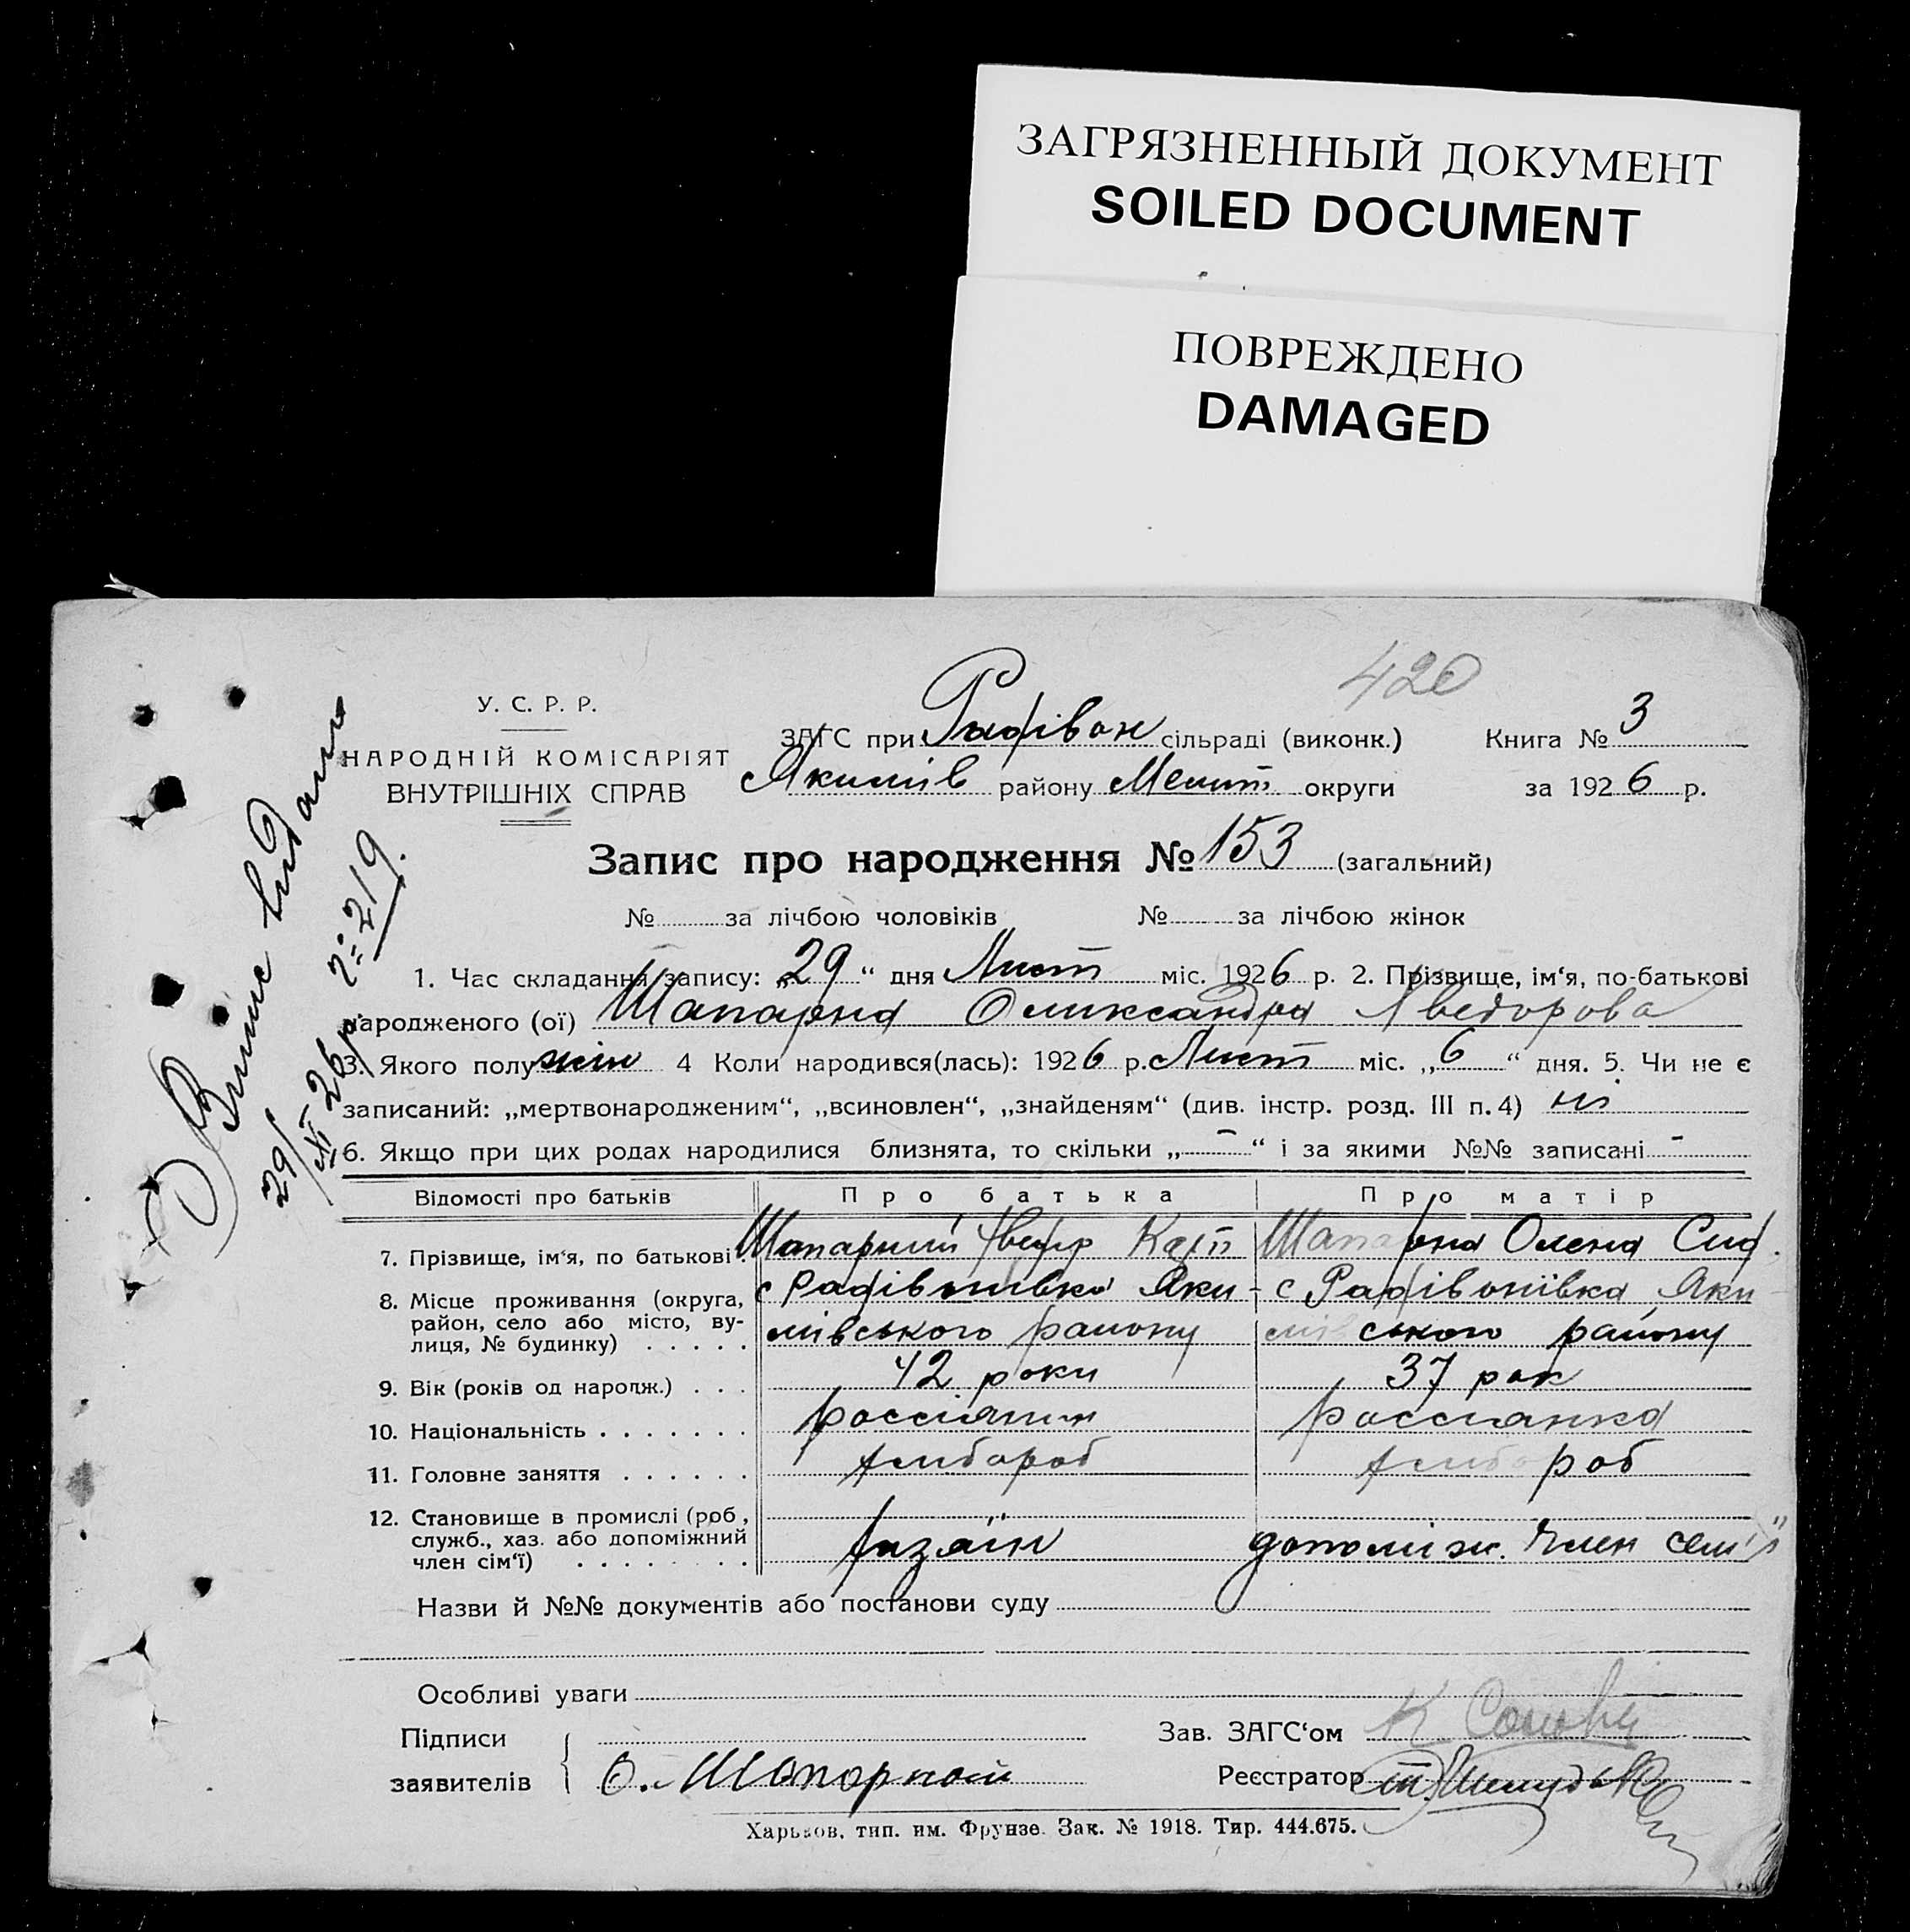 ЗАГРЯЗНЕННЫЙ ДОКУМЕНТ
SOILED DOCUMENT
ПОВРЕЖДЕНО
DAMAGED
420
У. С. Р. Р.
НАРОДНІЙ КОМІСАРІЯТ
ВНУТРІШНІХ СПРАВ
ЗАГС при Радівон сільраді (виконк.) Книга № 3
Якимів району Мелит. округи за 1926 р.
Запис про народження № 153 (загальний)
№ за лічбою чоловіків № за лічбою жінок
Випис видани
29/XI 26 р. №: 219.
1. Час складання запису: „29“ дня Лист міс. 1926 р. 2. Прізвище, ім‘я, по-батькові
народженого (ої) Шапарна Оликсандра
3. Якого полу жін 4 Коли народився(лась): 1926 р. Лист міс. „6“ дня. 5. Чи не є
записаний: „мертвонародженим“, „всиновлен“, „знайденям“ (див. інстр. розд. III п. 4) ні
6. Якщо при цих родах народилися близнята, то скільки „–“ і за якими №№ записані –
Відомості про батьків Про батька Про матір
7. Прізвище, ім‘я, по батькові. Шапарний Карп Шапарна Олена Сид.
8. Місце проживання (округа, район, село або місто, вулиця, № будинку) с Радівонівка Якимівського району с Радівонівка Якимівського району
9. Вік (років од народж.) 42 роки 37 рок
10. Національність россиянин россиянка
11. Головне заняття хлибороб хлибороб
12. Становище в промислі (роб., служб., хаз. або допоміжний член сім‘ї) хазяїн допоміж. член семї
Назви й №№ документів або постанови суду
Особливі уваги
Підписи
заявителів О. Шапорной
Зав. ЗАГС‘ом К
Реєстратор
Харьков, тип. им. Фрунзе. Зак. № 1918. Тир. 444.675.